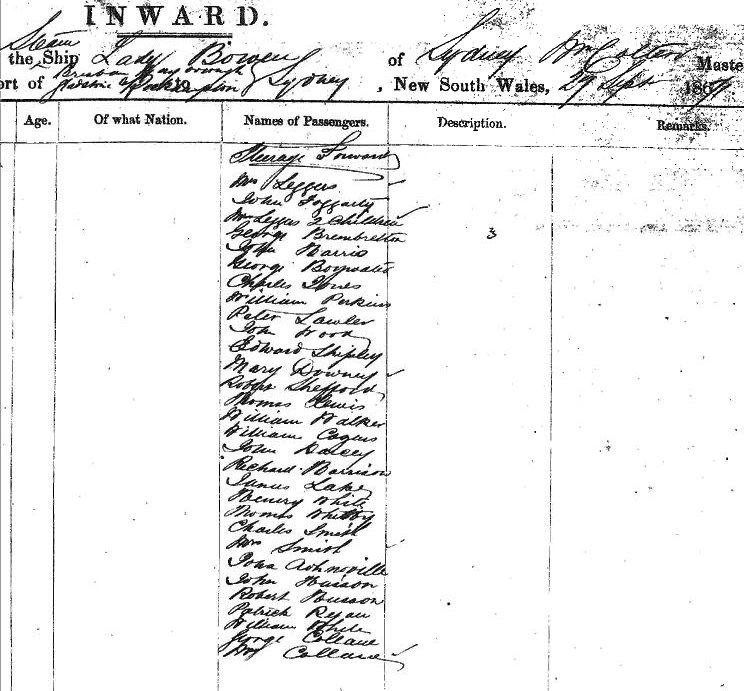 INWARD.
Steam
the Ship Lady Bowen of Sydney Wm Master
Brisbane Maryborough
ort of Gladstone & Rockhampton Sydney , New South Wales, 29 Sept 1867
Age. Of what Nation. Names of Passengers. Description. Remarks.
Steerage Forward
Mrs Leggers
John Foggarty
Mr Leggers 2 Children
George Brembretton 3
John Harris
George Boywater
Charles Jones
William Perkins
Peter Lawler
John Wood
Edward Shipley
Mary Downey
Robert Shefford
Thomas Lewis
William Walker
William Cogus
John Daley
Richard Harrison
James Lake
Henry White
Thomas Whitby
Charles Smith
Mrs Smith
John
John Husson
Robert Husson
Patrick Regan
William White
George Collane
Mrs Collane